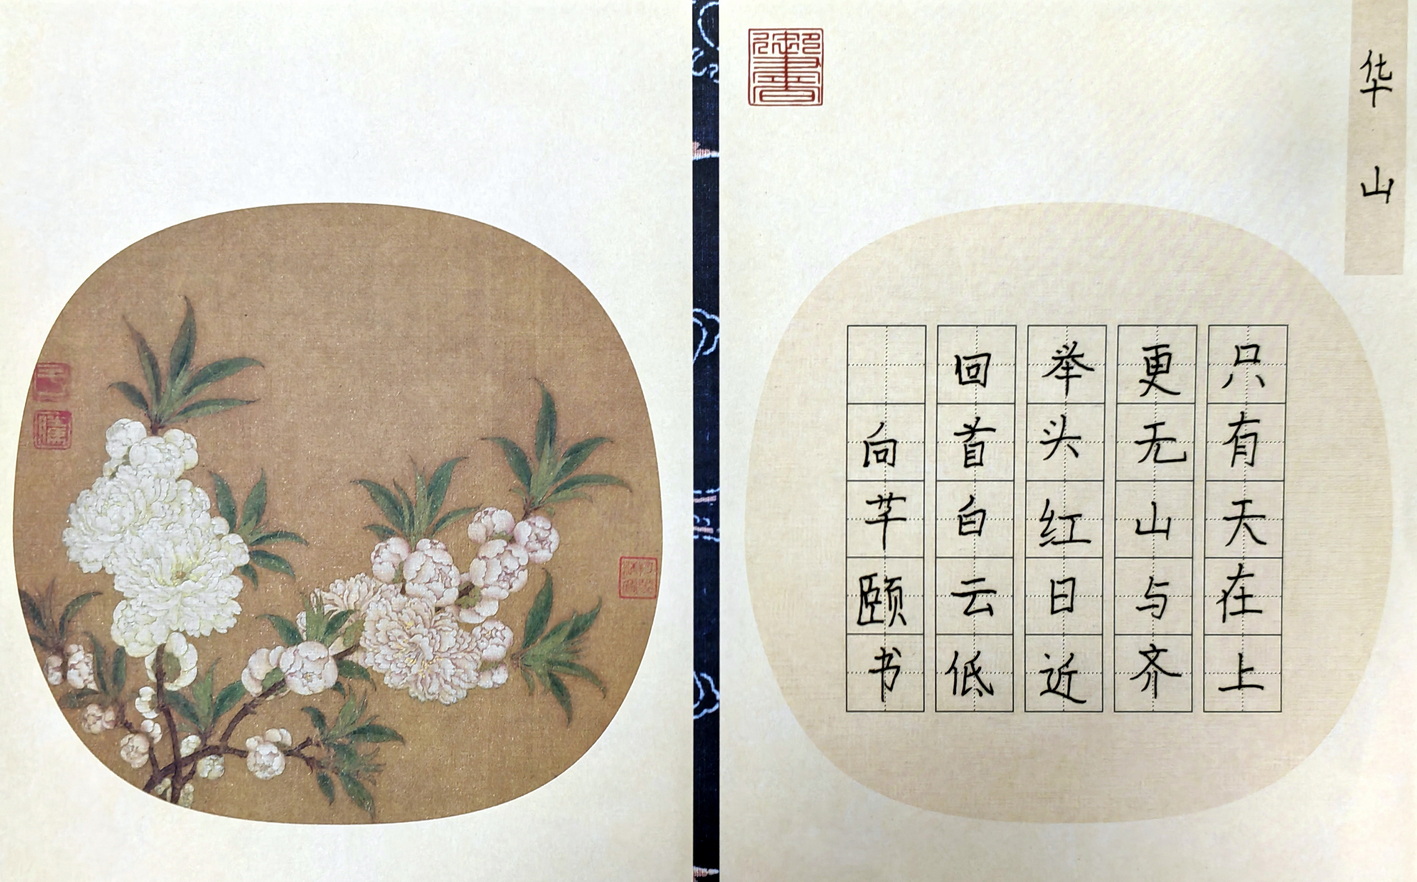 华山
只有天在上
更无山与齐
举头红日近
回首白云低
向芊颐书